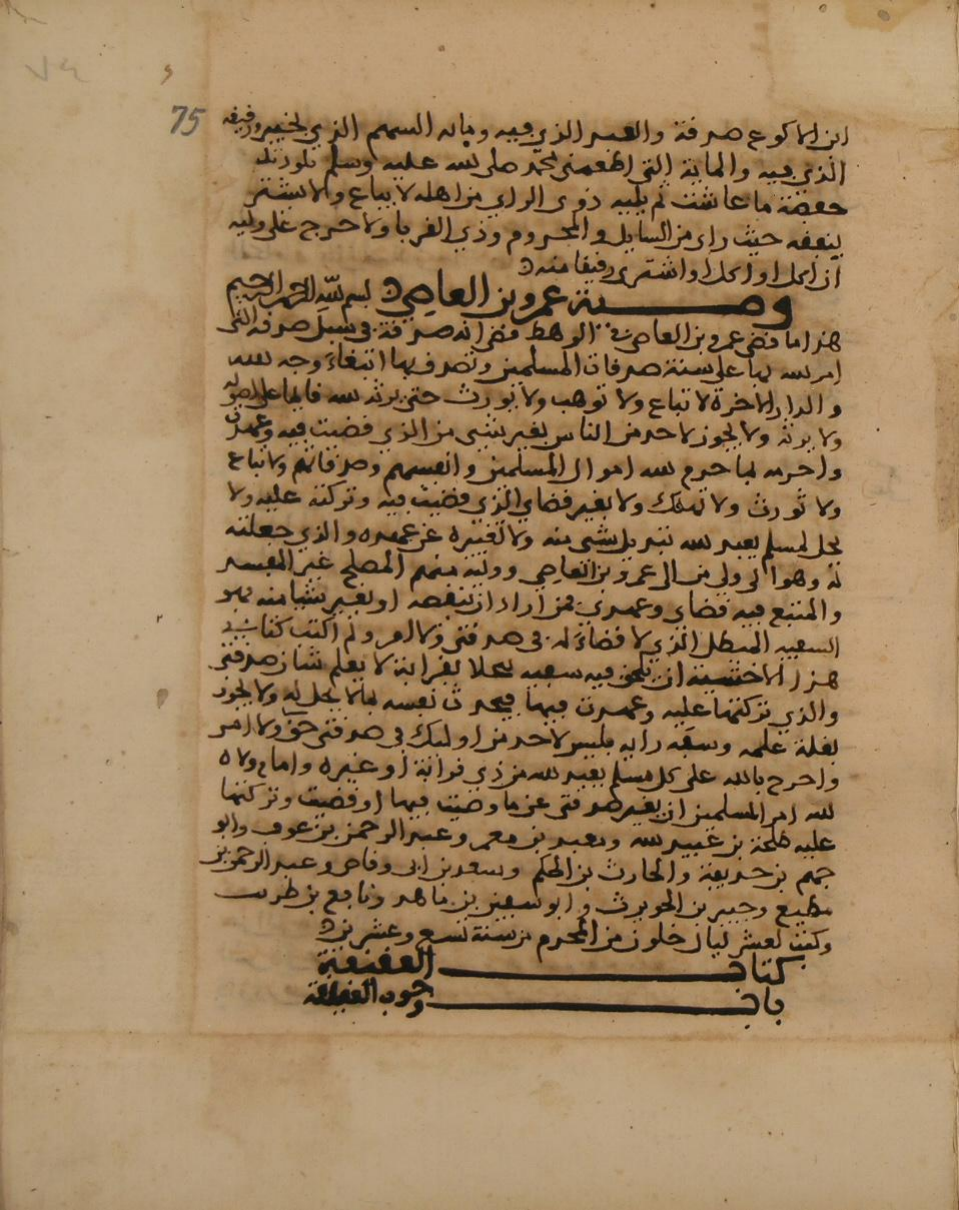 75
ابن الاكوع صدقة والعبد الذي فيه ومايه السهم الذي بخيبر ورقيقه
الذي فيه والماية التي اطعمني محمد صلى الله عليه وسلم
حفصة ما عاشت ثم يليه ذوي الراي من اهله لا يباع ولا يشترى
ينفقه حيث راى من السايل والمحروم وذي القربا ولا حرج على وليه
ان اكل او اكل او اشترى رقيقا منه
وصية عمرو بن العاصي بسم الله الرحمن الرحيم
هذا ما قضى عمرو بن العاصي في الوهط قضى انه صدقة في سبيل صدقه التي
امر الله بها على سنة صدقات المسلمين وتصدق بها ابتغاء وجه الله
والدار الاخرة لا تباع ولا توهب ولا تورث حتى يرثه الله قايما على
ولا يرثه ولا يجوز لاحد من الناس يغير شي من الذي قضيت فيه وعهدت
واحرمه بما حرم الله اموال المسلمين وانفسهم وصدقاتهم ولا تباع
ولا تورث ولا تهلك ولا يغير قضاي الذي قضيت فيه وتركته عليه ولا
يحل لمسلم يعبد الله تبديل شي منه ولا تغييره عن عهده والذي جعلته
له وهوا لى ولي من ال عمرو بن العاصي ووليه منهم المصلح غير المفسد
والمتبع فيه قضاي وعهدي فمن اراد ان ينقصه او يغير شيا منه فهو
السفيه المبطل الذي لا قضاء له في صدقتي ولا امر ولم اكتب كتابي
هذا الا خشية ان يلحق فيه سفيه بقرابة لا يعلم شان صدقتي
والذي تركتها عليه وعهدت فيها فيحدث نفسه بما لا يحل له ولا يجوز
لقلة علمه وسفه رايه فليس لاحد من اوليك في صدقتي حق ولا امر
واحرج بالله على كل مسلم يعبد الله من ذي قرابة او غيره وامام ولاه
الله امر المسلمين ان يغير صدقتي عن ما وضعت فيها او قضيت وتركتها
عليه طلحة بن عبيد الله ومعبد بن معمر وعبد الرحمن بن عوف وابو
جهم بن حذيفة والحارث بن الحكم وسعد بن ابي وقاص وعبد الرحمن بن
مطيع وجبير بن الحويرث وابو سفيان بن ونافع بن طريب
وكتب لعشر ليال خلون من المحرم من سنة تسع وعشرين
كتاب العقيقة
باب وجوب العقيقة